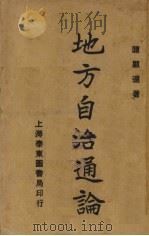 譚顯邁著
地方自治通論
上海泰東圖書局印行